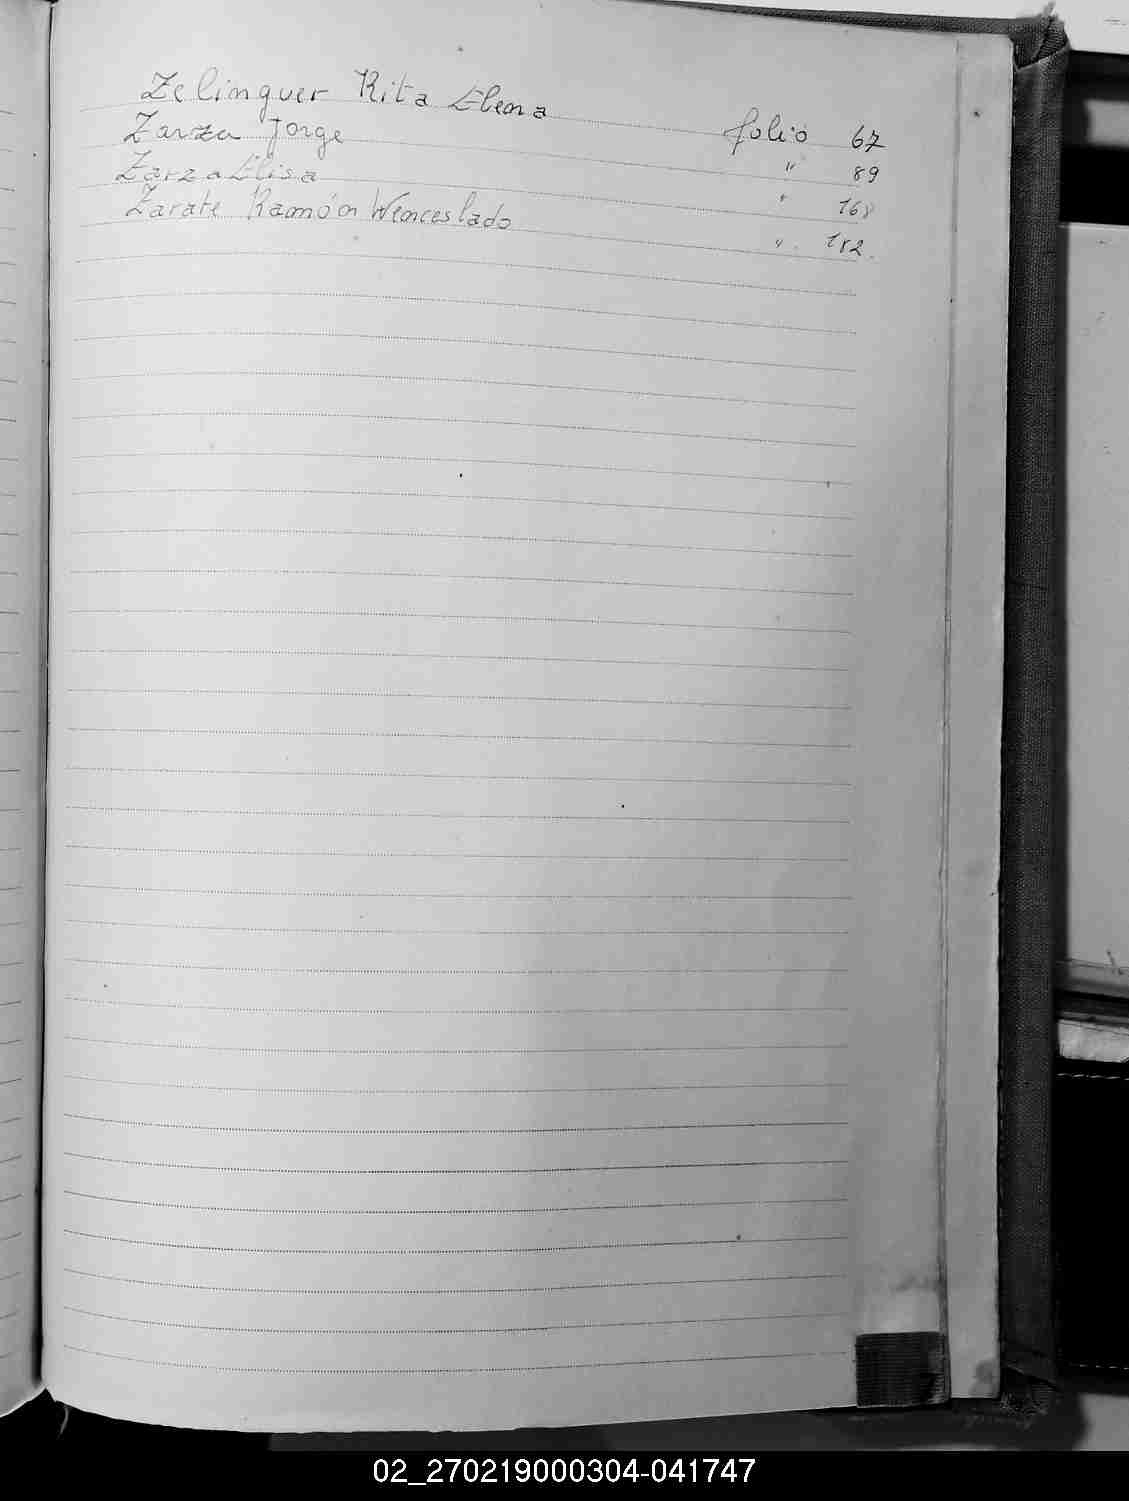 Zelinguer Rita Elena folio 67
Zarza Jorge " 89
Zarza Elisa " 168
Zarate Ramón Wenceslado " 182.
02_270219000304-041747